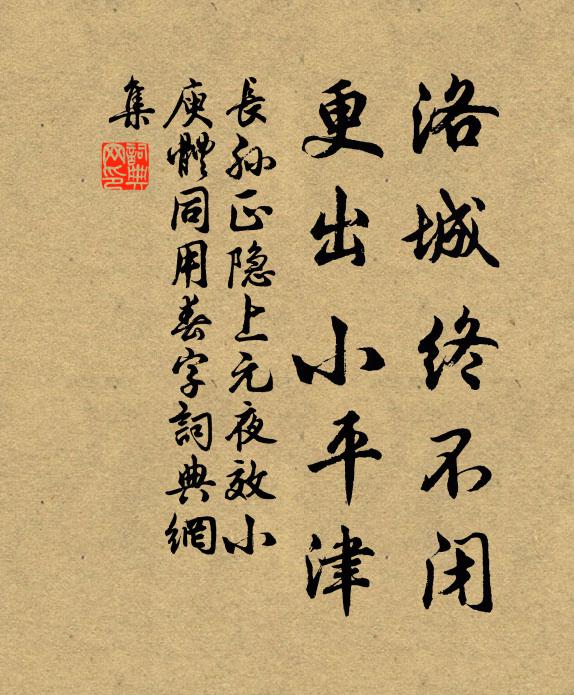 洛城终不闭
更出小平津
長孙正隐上元夜效小
庾體同用春字詞典網
集
詞典网印